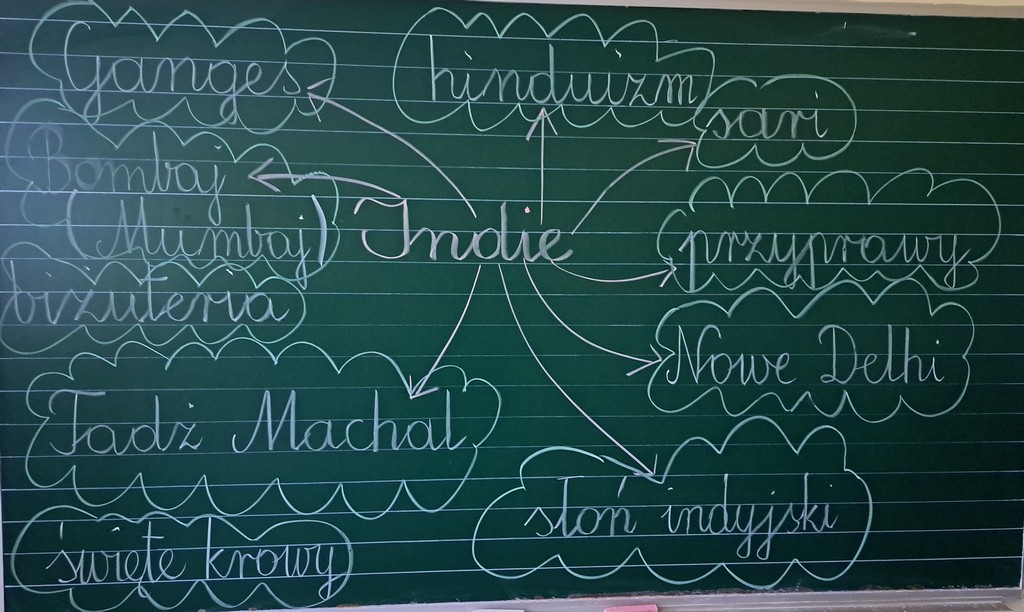 Ganges
hinduizm
sari
Bombaj
(Mumbaj)
Indie
przyprawy
biżuteria
Nowe Delhi
Tadż Machal
słoń indyjski
święte krowy